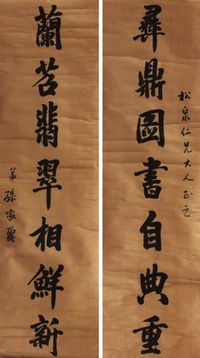 彝鼎圖書自典重
松泉仁兄大人正之
蘭苕翡翠相鮮新
弟孫家鼐